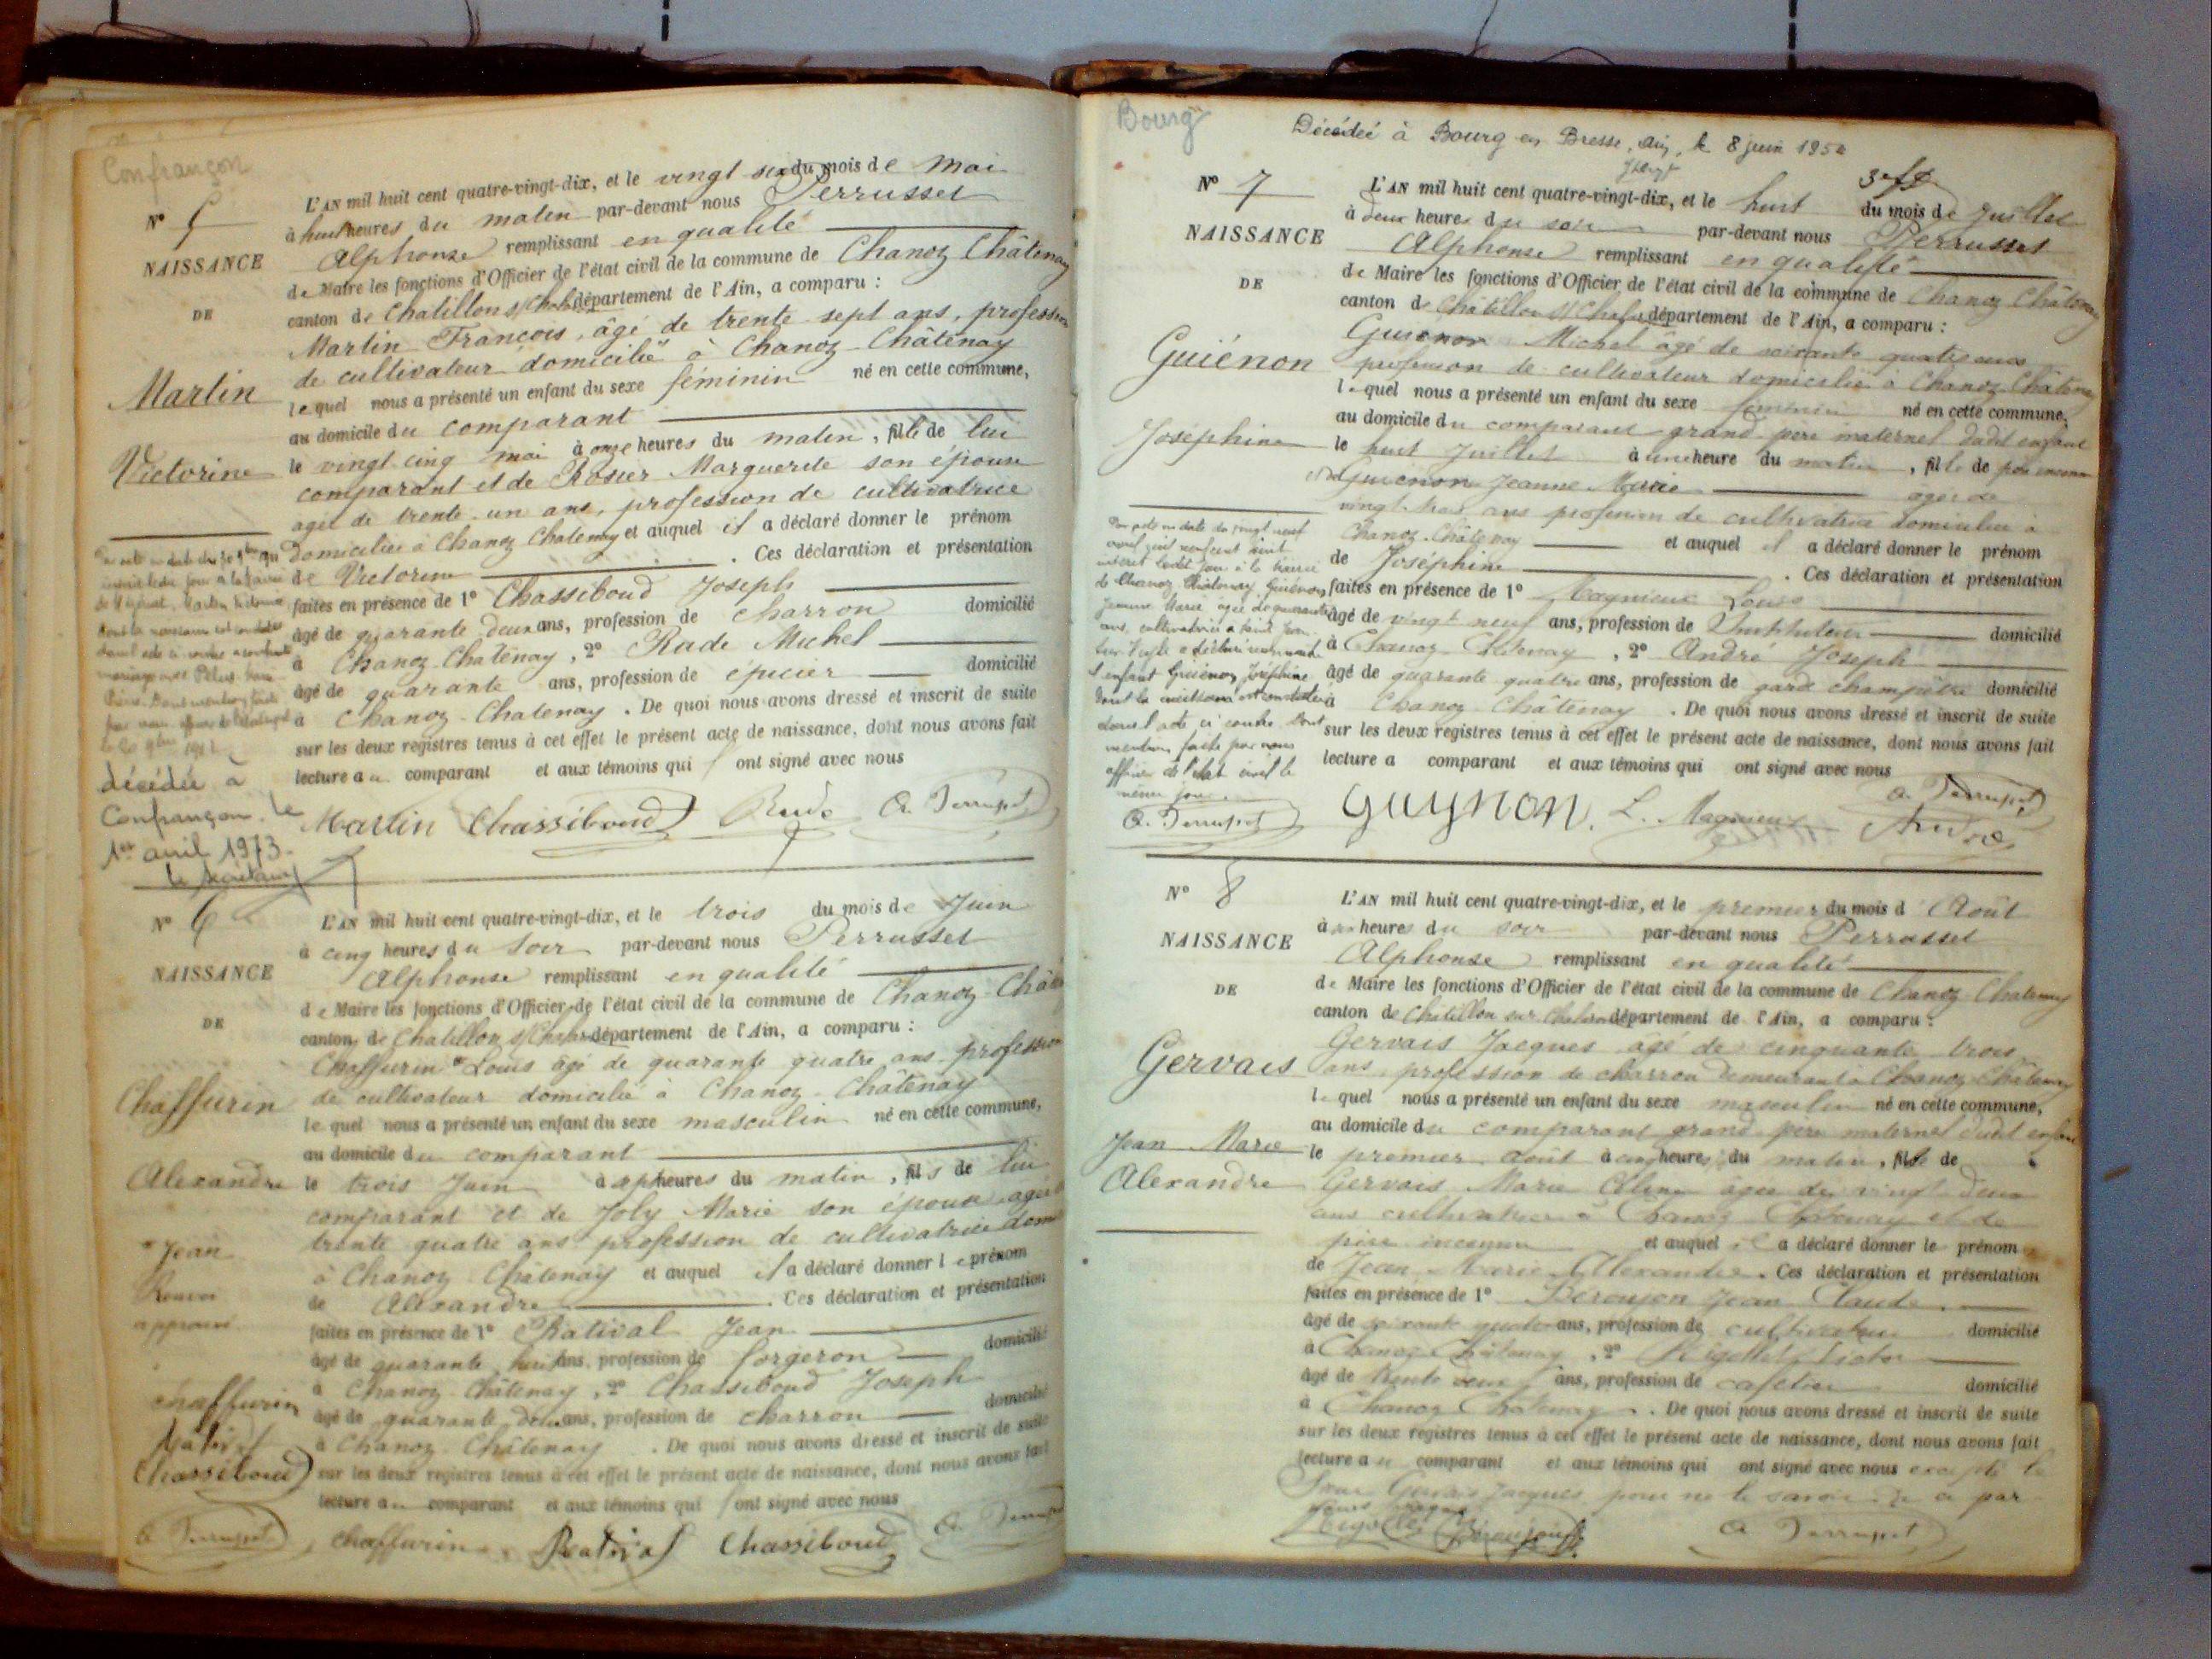 Confrançon
N° 5
NAISSANCE
DE
Martin
Victorine
L'AN mil huit cent quatre-vingt-dix, et le vingt six du mois de Mai
à huit heures du matin par-devant nous Perrusset
Alphonse remplissant en qualité
de Maire les fonctions d'Officier de l'état civil de la commune de Chanoz Châtenay
canton de Chatillon s/ département de l'Ain, a comparu :
Martin François, âgé de trente sept ans, profession
de cultivateur domicilié à Chanoz-Châtenay
lequel nous a présenté un enfant du sexe féminin né en cette commune,
au domicile du comparant
le vingt cinq mai à onze heures du matin, fille de lui
comparant et de Rosier Marguerite son épouse
agée de trente-un ans, profession de cultivatrice
domiciliée à Chanoz Chatenay et auquel il a déclaré donner le prénom
de Victorine . Ces déclaration et présentation
faites en présence de 1° Chassiboud Joseph
âgé de quarante deux ans, profession de charron domicilié
à Chanoz-Chatenay, 2° Rude Michel
âgé de quarante ans, profession de épicier domicilié
à Chanoz-Chatenay . De quoi nous avons dressé et inscrit de suite
sur les deux registres tenus à cet effet le présent acte de naissance, dont nous avons fait
lecture au comparant et aux témoins qui ont signé avec nous
décédée à
Confrançon le
1er avril 1973.
le secrétaire
Martin Chassiboud Rude A. Perrusset
N° 6
NAISSANCE
DE
Chaffurin
Alexandre
Jean
Renvoi
approuvé
chaffurin
Rativat
Chassiboud
L'AN mil huit cent quatre-vingt-dix, et le trois du mois de Juin
à cinq heures du soir par-devant nous Perrusset
Alphonse remplissant en qualité
de Maire les fonctions d'Officier de l'état civil de la commune de Chanoz-Chât
canton de Chatillon s/ département de l'Ain, a comparu :
Chaffurin Louis âgé de quarante quatre ans profession
de cultivateur domicilié à Chanoz-Châtenay
lequel nous a présenté un enfant du sexe masculin né en cette commune,
au domicile du comparant
le trois Juin à sept heures du matin, fils de lui
comparant et de Joly Marie son épouse agée
trente quatre ans profession de cultivatrice dom
à Chanoz Châtenay et auquel il a déclaré donner le prénom
de Alexandre . Ces déclaration et présentation
faites en présence de 1° Rativat Jean
âgé de quarante huit ans, profession de forgeron domicilié
à Chanoz-Châtenay, 2° Chassiboud Joseph
âgé de quarante deux ans, profession de charron domicilié
à Chanoz-Châtenay . De quoi nous avons dressé et inscrit de suite
sur les deux registres tenus à cet effet le présent acte de naissance, dont nous avons fait
lecture au comparant et aux témoins qui ont signé avec nous
A. Perrusset chaffurin Rativat Chassiboud A. Perrusset
Bourg
Décédée à Bourg en Bresse, Ain, le 8 juin 1954
N° 7
NAISSANCE
DE
Guiénon
Joséphine
L'AN mil huit cent quatre-vingt-dix, et le huit du mois de Juillet
à deux heures du soir par-devant nous Perrusset
Alphonse remplissant en qualité
de Maire les fonctions d'Officier de l'état civil de la commune de Chanoz Châtenay
canton de Châtillon s/ département de l'Ain, a comparu :
Guiénon Michel âgé de soixante quatre ans
profession de cultivateur domicilié à Chanoz Châtenay
lequel nous a présenté un enfant du sexe féminin né en cette commune,
au domicile du comparant grand-père maternel dudit enfant
le huit Juillet à une heure du matin, fille de père inconnu
et de Guiénon Jeanne Marie agée de
vingt-trois ans profession de cultivatrice domiciliée à
Chanoz-Châtenay et auquel il a déclaré donner le prénom
de Joséphine . Ces déclaration et présentation
faites en présence de 1° Magnieux Louis
âgé de vingt neuf ans, profession de Instituteur domicilié
à Chanoz Châtenay, 2° André Joseph
âgé de quarante quatre ans, profession de garde champêtre domicilié
à Chanoz-Châtenay . De quoi nous avons dressé et inscrit de suite
sur les deux registres tenus à cet effet le présent acte de naissance, dont nous avons fait
lecture a comparant et aux témoins qui ont signé avec nous
l'enfant Guiénon Joséphine
dont la naissance est constatée
dans l'acte ci contre. Dont
mention faite par nous
officier de l'état civil le
même jour.
A. Perrusset Guynon. L. Magnieux A. Perrusset
André
N° 8
NAISSANCE
DE
Gervais
Jean Marie
Alexandre
L'AN mil huit cent quatre-vingt-dix, et le premier du mois d'Août
à heures du soir par-devant nous Perrusset
Alphonse remplissant en qualité
de Maire les fonctions d'Officier de l'état civil de la commune de Chanoz-Chatenay
canton de Châtillon sur département de l'Ain, a comparu :
Gervais Jacques agé de cinquante trois
ans, profession de charron demeurant à Chanoz-Châtenay
lequel nous a présenté un enfant du sexe masculin né en cette commune,
au domicile du comparant grand père maternel dudit enfant
le premier août à cinq heures du matin, fils de
Gervais Marie Céline agée de vingt deux
ans cultivatrice à Chanoz Châtenay et de
père inconnu et auquel il a déclaré donner le prénom
de Jean Marie Alexandre. Ces déclaration et présentation
faites en présence de 1° Béroujon Jean Claude
âgé de soixante quatre ans, profession de cultivateur domicilié
à Chanoz Châtenay, 2° Rigollet Victor
âgé de trente deux ans, profession de cafetier domicilié
à Chanoz Chatenay . De quoi nous avons dressé et inscrit de suite
sur les deux registres tenus à cet effet le présent acte de naissance, dont nous avons fait
lecture au comparant et aux témoins qui ont signé avec nous excepté le
Sieur Gervais Jacques pour ne le savoir
Rigollet Béroujon A. Perrusset